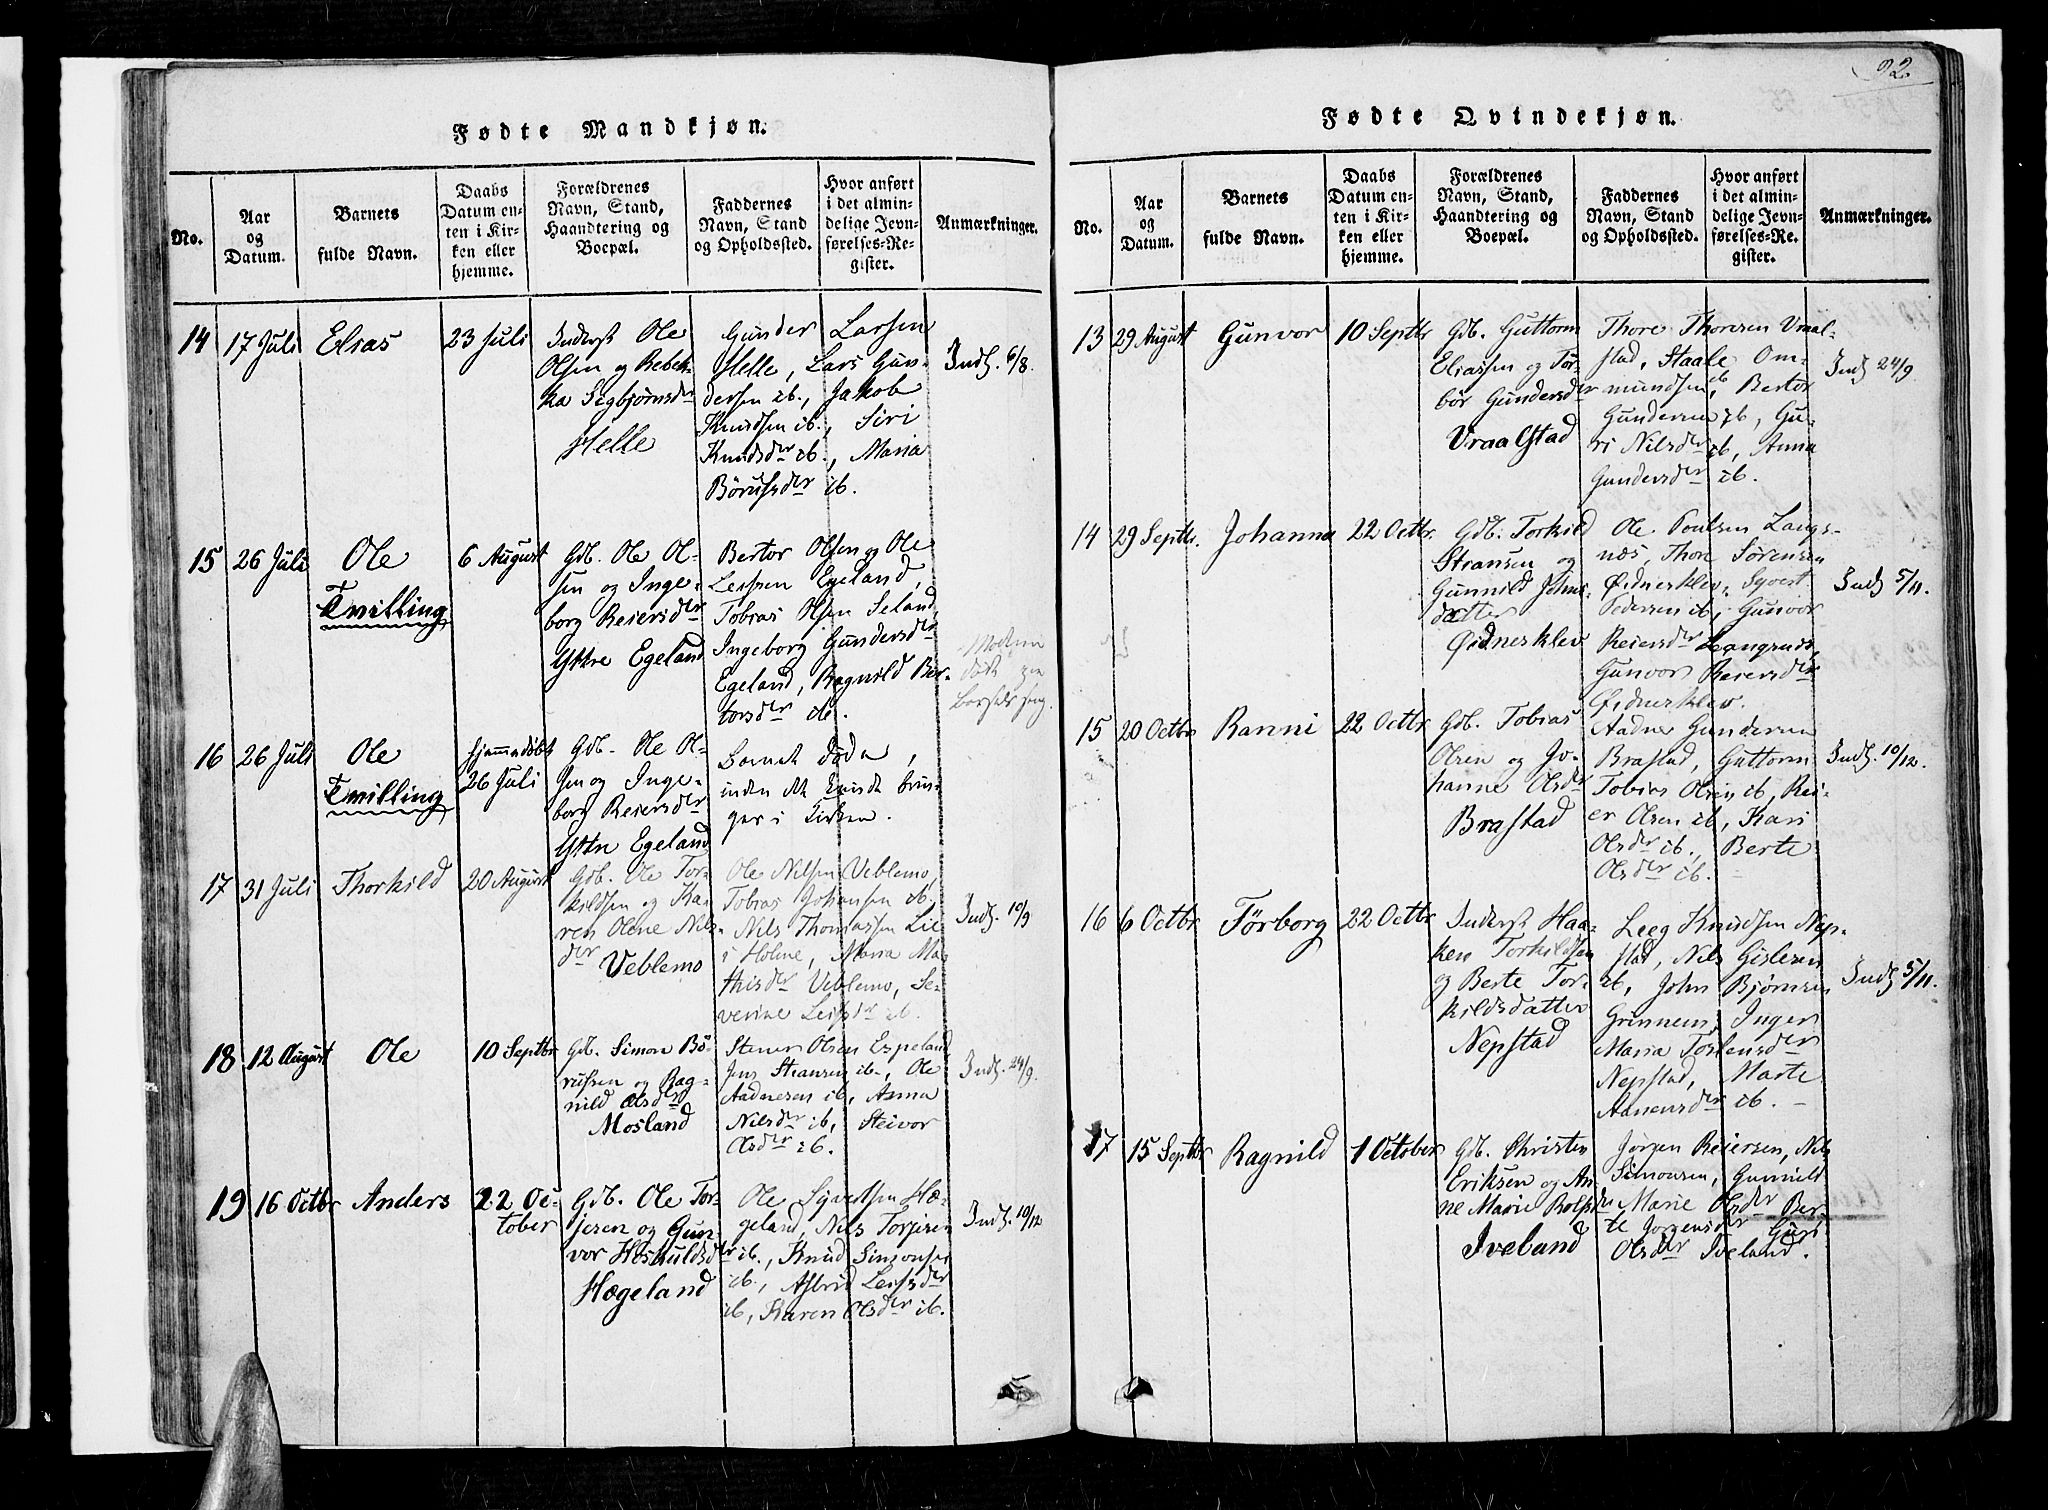 Fødte Mandkjøn.
No.
Aar
og
Datum.
Barnets
fulde Navn.
Daabs
Datum en-
ten i Kir-
ken eller
hjemme.
Forældrenes
Navn, Stand,
Haandtering og
Boepæl.
Faddernes
Navn, Stand
og Opholdssted.
Hvor anført
i det almin-
delige Jevn-
førelses-Re-
gister.
Anmærkninger.
14
17 Juli
Elias
23 Juli
Inderst Ole
Olsen og Rebek-
ka Sigbjørnsdr
Helle
Gunder Larsen
Helle, Lars Gun-
dersen ib., Jakob
Knudsen ib., Siri
Knudsdr ib., Maria
Børufsdr ib.
Inds. 6/8.
15
26 Juli
Ole
Tvilling
6 August
Gdb. Ole Ol-
sen og Inge-
borg Reiersdr
Yttre Egeland
Bertor Olsen og Ole
Leifsen Egeland,
Tobias Olsen Seland,
Ingeborg Gundersdr
Egeland, Ragnild Ber-
torsdr ib.
Modern
død
16
26 Juli
Ole
Tvilling
Hjemmedøbt
26 Juli
Gdb. Ole Ol-
sen og Inge-
borg Reiersdr
Yttre Egeland
Barnet døde,
inden det kunde brin-
ges i Kirken.
17
31 Juli
Thorkild
20 August
Gdb. Ole Tor-
kildsen og Ka-
ren Olene Nils-
dr
Veblemo
Ole Nilsen Veblemo,
Tobias Johansen ib,
Nils Thomassen Lil-
i Holme, Maria Ma-
thisdr Veblemo, Se-
verine Leifsdr ib.
Inds. 10/9
18
12 August
Ole
10 Septbr
Gdb. Simon Bø-
rufsen og Rag-
nild Olsdr
Mosland
Stener Olsen Espeland
Jens Stiansen ib., Ole
Aadnesen ib, Anna
Nilsdr ib, Steivor
Olsdr ib.
Inds. 24/9.
19
16 Octbr
Anders
22 Oc-
tober
Gdb. Ole Tor-
jesen og Gun-
vor Høskuldsdr
Hægeland
Ole Syvertsen Hæ-
geland, Nils Torjesen
ib., Knud Simonsen
ib., Astrid Leifsdr
ib, Karen Olsdr ib.
Inds. 10/12
92
Fødte Qvindekjøn.
No.
Aar
og
Datum.
Barnets
fulde Navn.
Daabs
Datum en-
ten i Kir-
ken eller
hjemme.
Forældrenes
Navn, Stand,
Haandtering og
Boepæl.
Faddernes
Navn, Stand
og Opholdssted.
Hvor anført
i det almin-
delige Jevn-
førelses-Re-
gister.
Anmærkninger.
13
29 August
Gunvor
10 Septbr
Gdb. Guttorm
Eliassen og Tor-
bor Gundersdr
Vraalstad
Thore Thoresen Vraal-
stad, Staale Om-
mundsen ib, Bertor
Gundersen ib, Gu-
ri Nilsdr ib, Anna
Gundersdr ib.
Inds 24/9.
14
29 Septbr.
Johanna
22 Octbr.
Gdb. Torkild
Stiansen og
Gunnild Johns-
datter
Øidnesklev
Ole Poulsen Langs-
næs, Thore Sørensen
Øidnesklev, Syvert
Pedersen ib, Gunvor
Reiersdr
Gunvor Reiersdr
Øidnesklev.
Inds 5/11.
15
20 Octbr
Ranni
22 Octbr
Gdb. Tobias
Olsen og Jo-
hanne Olsdr
Brastad
Aadne Gundersen
Brastad, Guttorm
Tobias Olsen ib, Rei-
er Olsen ib, Kari
Olsdr ib., Berte
Olsdr ib.
Inds. 10/12.
16
6 Octbr
Tørborg
22 Octbr
Inderst Haa-
ken Torkildsen
og Berte Tor-
kildsdatter
Nepstad
Leeg Knudsen Nep-
stad, Nils Gislesen
ib, John Bjørnsen
Grinnem, Inger
Maria Torlensdr
Nepstad, Marte
Aanensdr ib.
Inds 5/11.
17
15 Septbr
Ragnild
1 October
Gdb. Christen
Eriksen og An-
ne Marie Rolfsdr
Iveland
Jørgen Reiersen, Nils
Simonsen, Gunnild
Marie Olsdr Ber-
te Jørgensdr Guri
Olsdr Iveland.